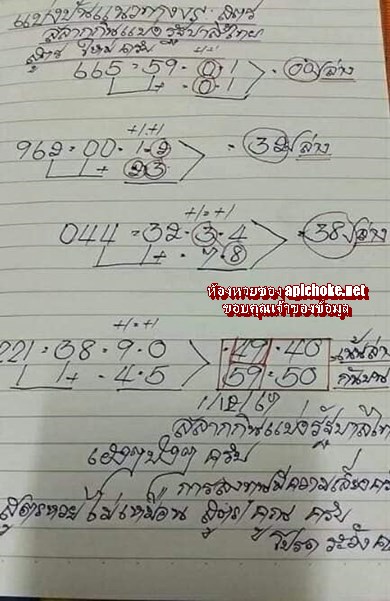 แบ่งปันแนวทาง
สลากกินแบ่งรัฐบาลไทย
สูตร ใหม่ ครับ
+1 +1
665 = 59 · 0 · 1 = 00 ล่าง
+ · 0 · 1
+1 · +1
962 = 00 · 1 · 2 = 32 ล่าง
+ 23
+1 · +1
044 = 32 · 3 · 4 = 38 ล่าง
+ · 7 · 8
ห้องหวยของ apichoke.net
ขอบคุณเจ้าของข้อมูล
+1 · +1
221 = 38 · 9 · 0 · 49 · 40
+ · 4 · 5 59 · 50
สลากกินแบ่งรัฐบาลไทย
ครับ
การลงทุนมีความเสี่ยง
สูตรหวย ไม่เหมือน สูตร คูณ ครับ
โปรด ระวัง